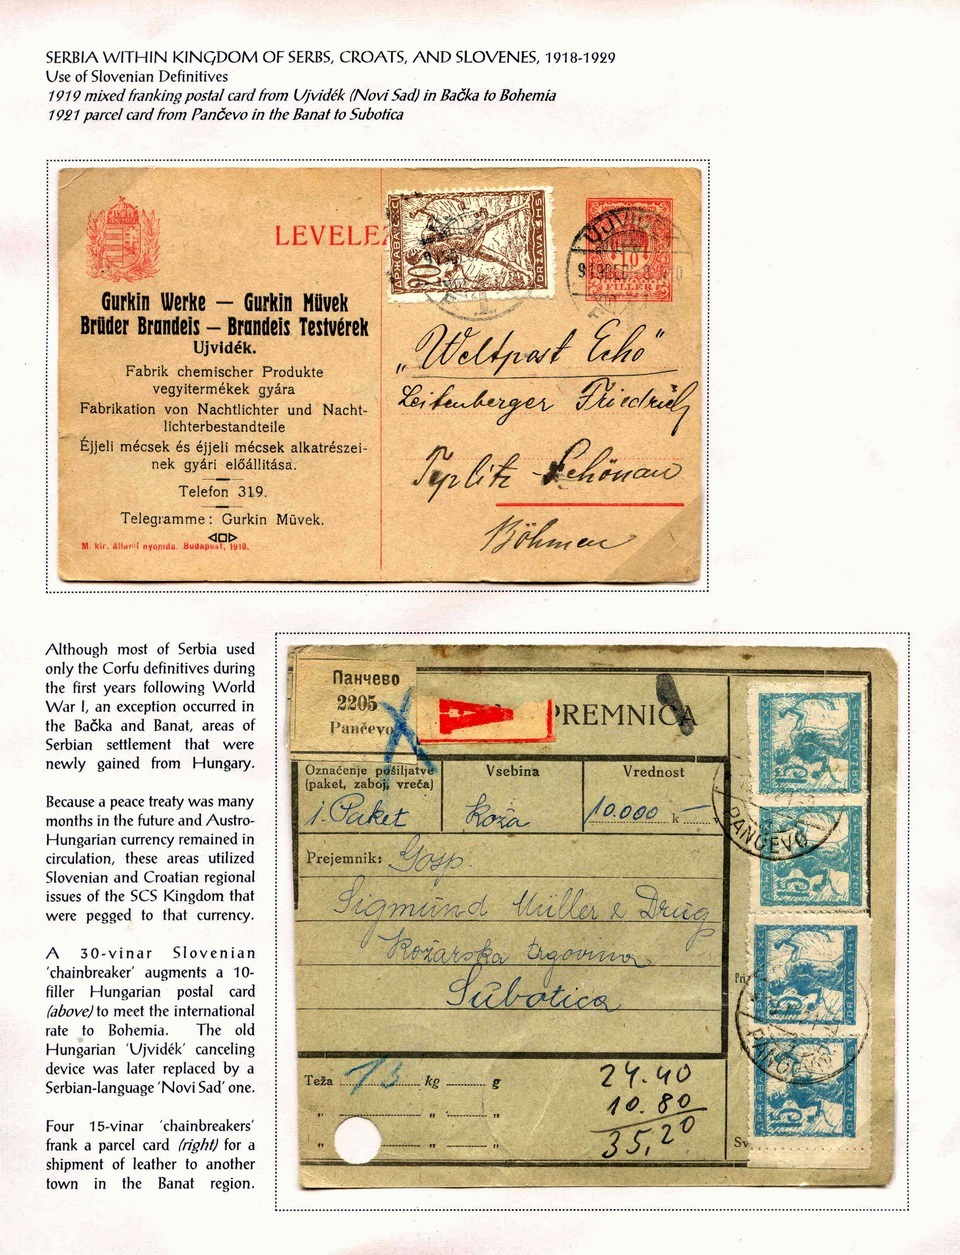 SERBIA WITHIN KINGDOM OF SERBS, CROATS, AND SLOVENES, 1918-1929
Use of Slovenian Definitives
1919 mixed franking postal card from Ujvidék (Novi Sad) in Bačka to Bohemia
1921 parcel card from Pančevo in the Banat to Subotica
LEVELEZ
ДРЖАВА СХС
20
DRŽAVA SHS
UJVIDÉK
10
FILLÉR
Gurkin Werke — Gurkin Müvek
Brüder Brandeis — Brandeis Testvérek
Ujvidék.
Fabrik chemischer Produkte
vegyitermékek gyára
Fabrikation von Nachtlichter und Nacht-
lichterbestandteile
Éjjeli mécsek és éjjeli mécsek alkatrészei-
nek gyári előállitása.
Telefon 319.
Telegramme: Gurkin Müvek.
M. kir. állami nyomda. Budapest, 1918.
„Weltpost Echo"
Leitenberger Friedrich
Teplitz-Schönau
Böhmen
Although most of Serbia used
only the Corfu definitives during
the first years following World
War I, an exception occurred in
the Bačka and Banat, areas of
Serbian settlement that were
newly gained from Hungary.
Because a peace treaty was many
months in the future and Austro-
Hungarian currency remained in
circulation, these areas utilized
Slovenian and Croatian regional
issues of the SCS Kingdom that
were pegged to that currency.
A 30-vinar Slovenian
'chainbreaker' augments a 10-
filler Hungarian postal card
(above) to meet the international
rate to Bohemia. The old
Hungarian 'Ujvidék' canceling
device was later replaced by a
Serbian-language 'Novi Sad' one.
Four 15-vinar 'chainbreakers'
frank a parcel card (right) for a
shipment of leather to another
town in the Banat region.
Панчево
2205
Pančevo
PREMNICA
Označenje pošiljatve
(paket, zaboj, vreča)
Vsebina
Vrednost
1. Paket
Koža
10.000 — k
Prejemnik: Gosp.
Sigmund Müller & Drug
Kožarska trgovina
Subotica
Teža 13 kg g
" " "
" " "
24.40
10.80
35,20
ДРЖАВА СХС
15
DRŽAVA SHS
PANČEVO
ДРЖАВА СХС
15
DRŽAVA SHS
ДРЖАВА СХС
15
DRŽAVA SHS
PANČEVO
ДРЖАВА СХС
15
DRŽAVA SHS